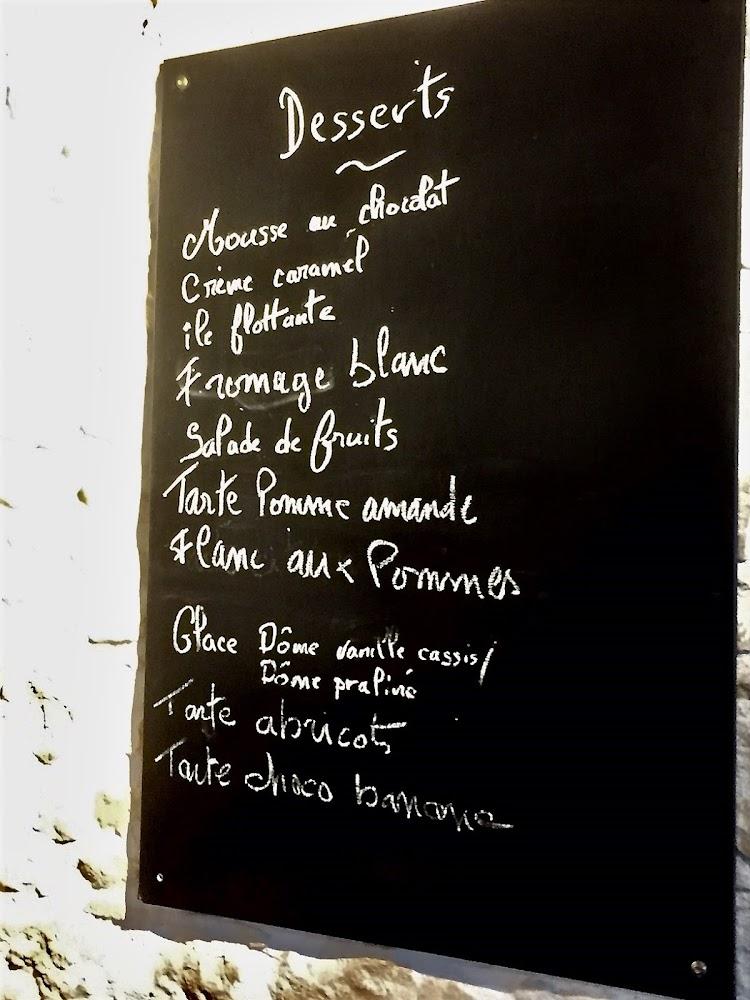 Desserts
Mousse au chocolat
Crème caramel
île flottante
Fromage blanc
Salade de fruits
Tarte Pomme amande
Flanc aux Pommes
Glace Dôme vanille cassis/
Dôme praliné
Tarte abricots
Tarte choco banane